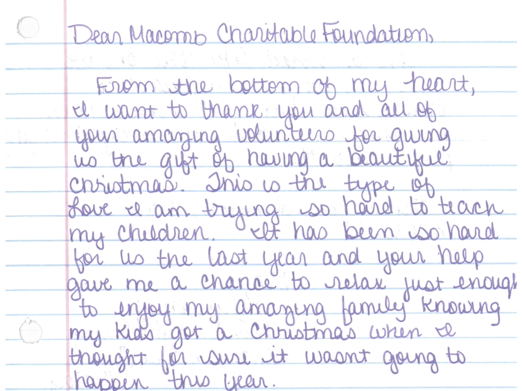 Dear Macomb Charitable Foundation,
From the bottom of my heart,
I want to thank you and all of
your amazing volunteers for giving
us the gift of having a beautiful
Christmas. This is the type of
Love I am trying so hard to teach
my children. It has been so hard
for us the last year and your help
gave me a chance to relax just enough
to enjoy my amazing family knowing
my kids got a Christmas when I
thought for sure it wasnt going to
happen this year.